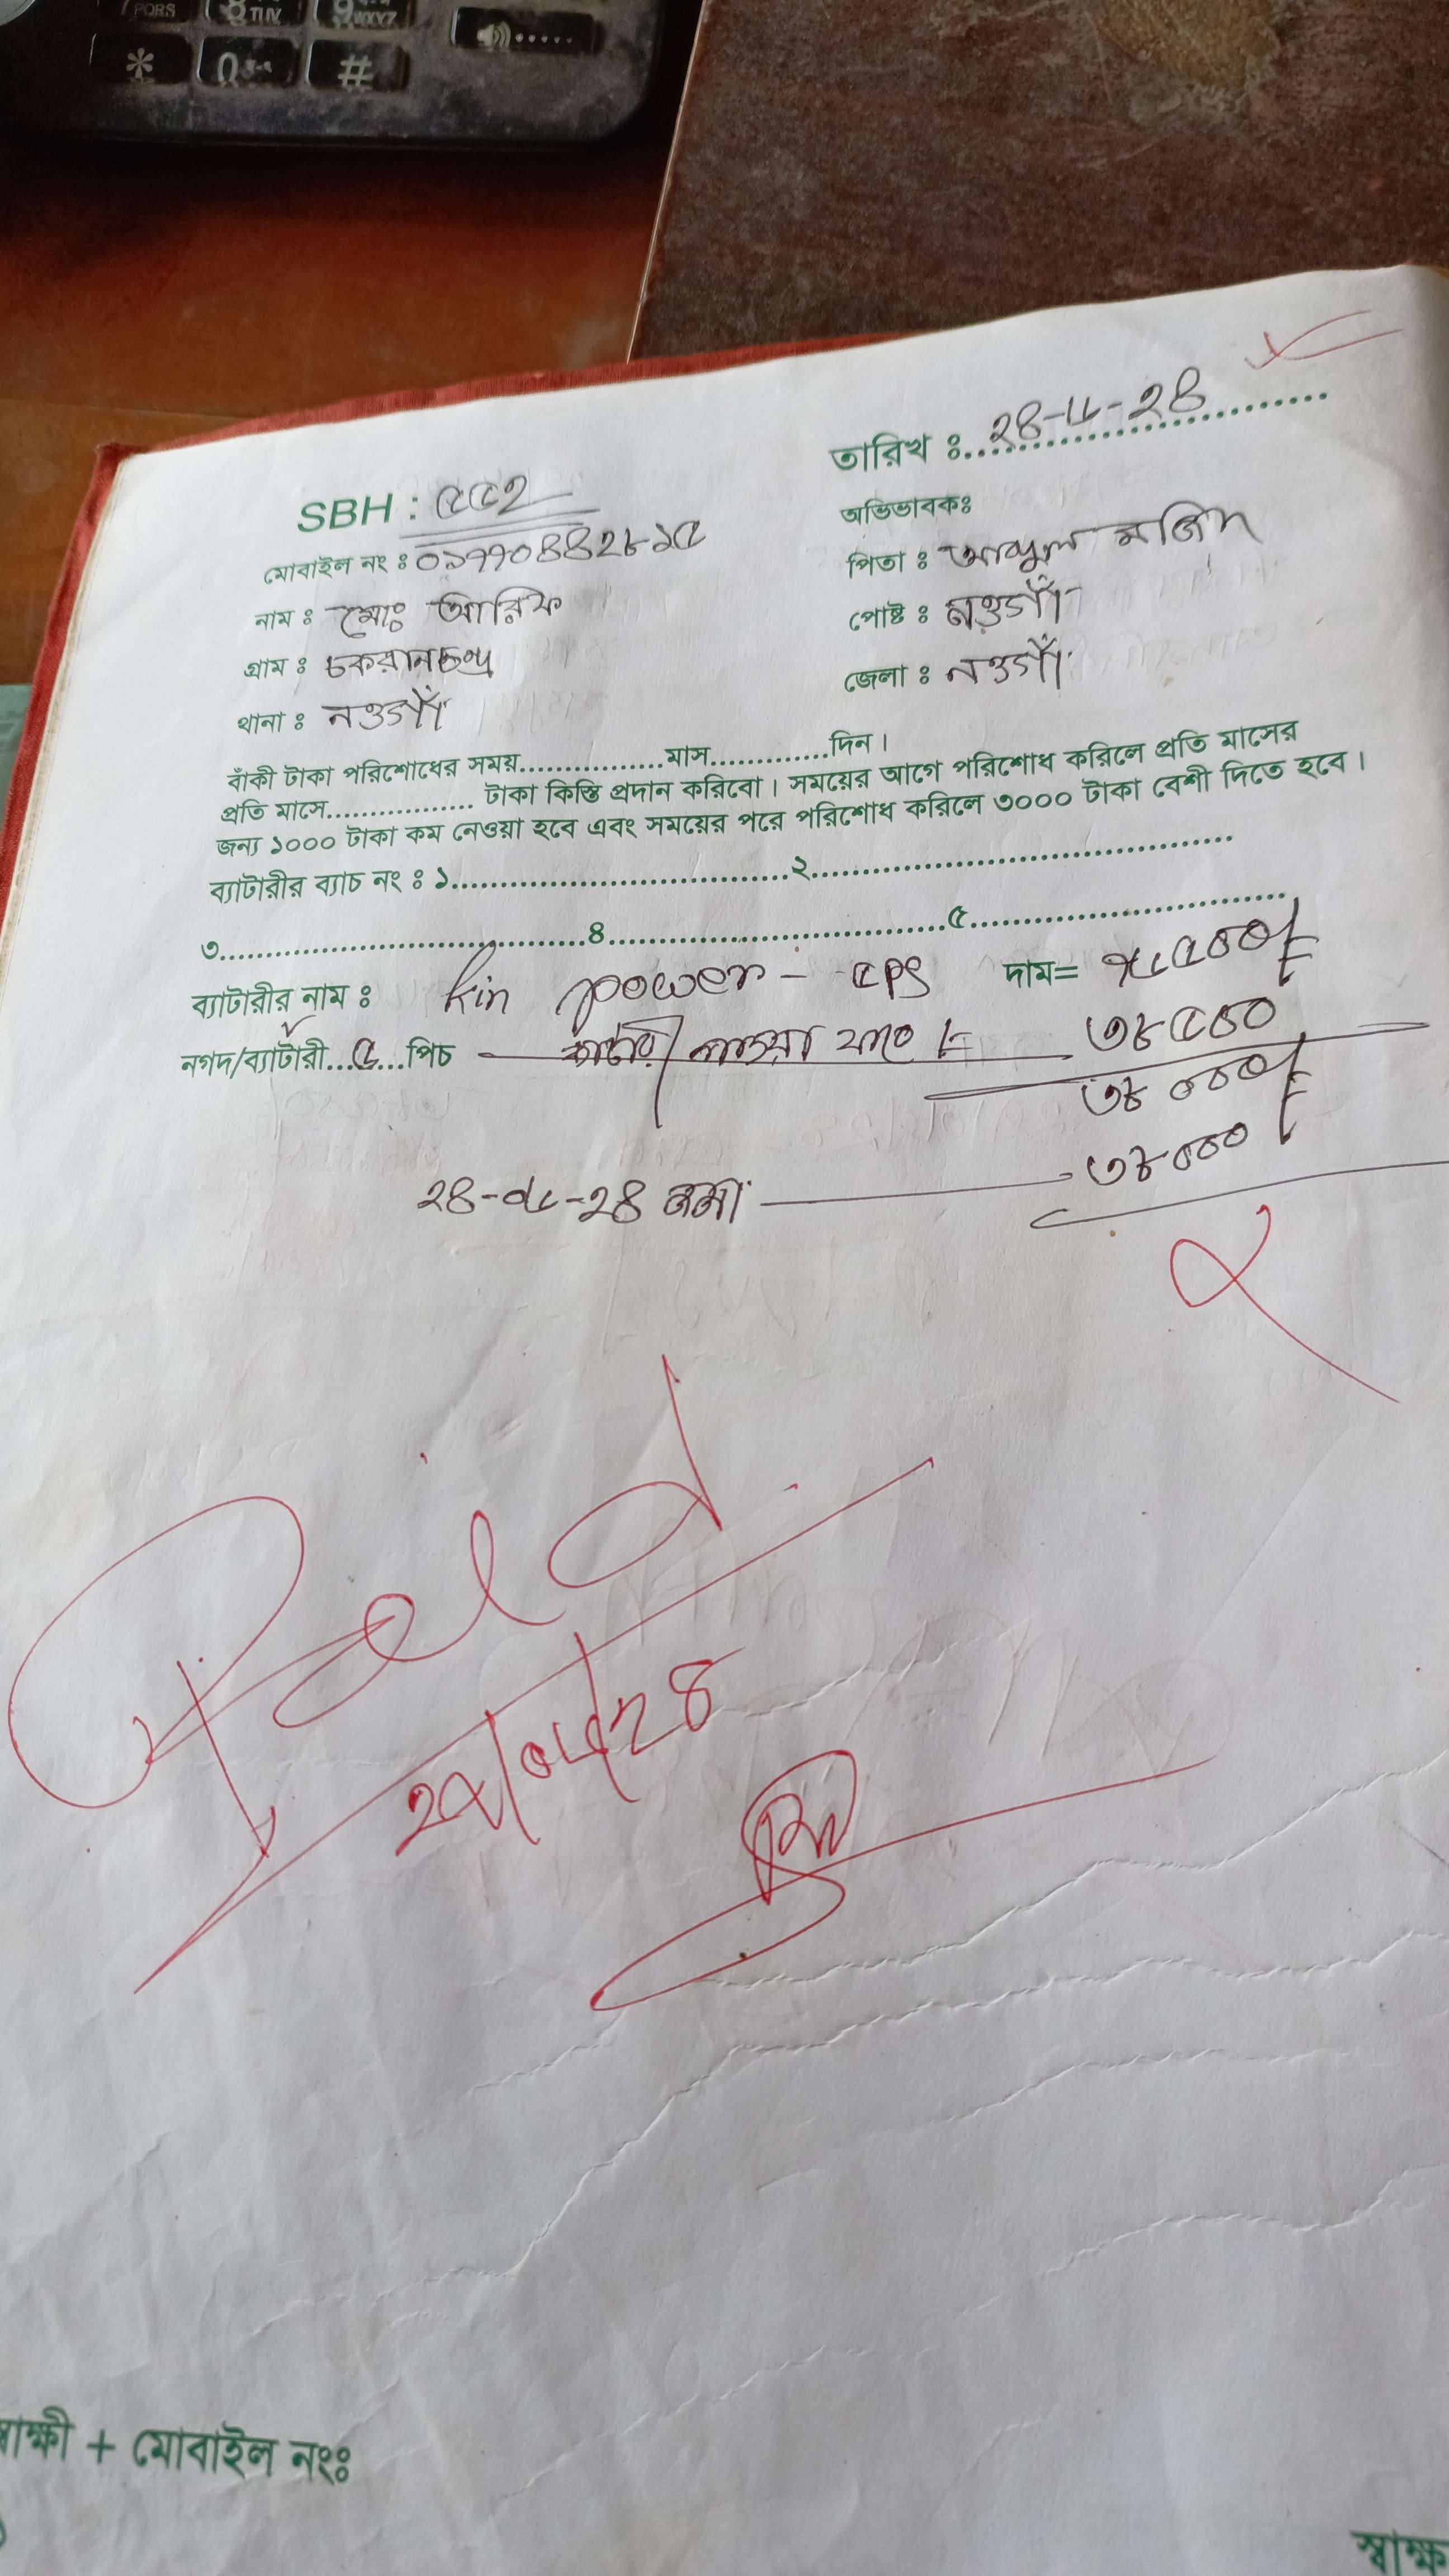 PQRS 8 TUV 9 WXYZ
* 0 #
তারিখ ঃ ২৪-৬-২৪
SBH : ৫৫২
অভিভাবকঃ
মোবাইল নং ঃ ০১৭৭০৪৪২৮১৫
পিতা ঃ আব্দুল মজিদ
নাম ঃ মোঃ আরিফ
পোষ্ট ঃ নওগাঁ
গ্রাম ঃ চকরামচন্দ্র
জেলা ঃ নওগাঁ
থানা ঃ নওগাঁ
বাঁকী টাকা পরিশোধের সময়................মাস.............দিন।
প্রতি মাসে................ টাকা কিস্তি প্রদান করিবো। সময়ের আগে পরিশোধ করিলে প্রতি মাসের
জন্য ১০০০ টাকা কম নেওয়া হবে এবং সময়ের পরে পরিশোধ করিলে ৩০০০ টাকা বেশী দিতে হবে।
ব্যাটারীর ব্যাচ নং ঃ ১......................................২................................................
৩..........................................৪......................................৫....................................
ব্যাটারীর নাম ঃ kin power - ৫ps দাম= ৭৬৫০০/=
নগদ/ব্যাটারী...৫...পিচ ৩৮৫০০
৩৮০০০/=
২৪-০৬-২৪ জমা ৩৮০০০
Paid
/০৬/২৪
স্বাক্ষী + মোবাইল নংঃ